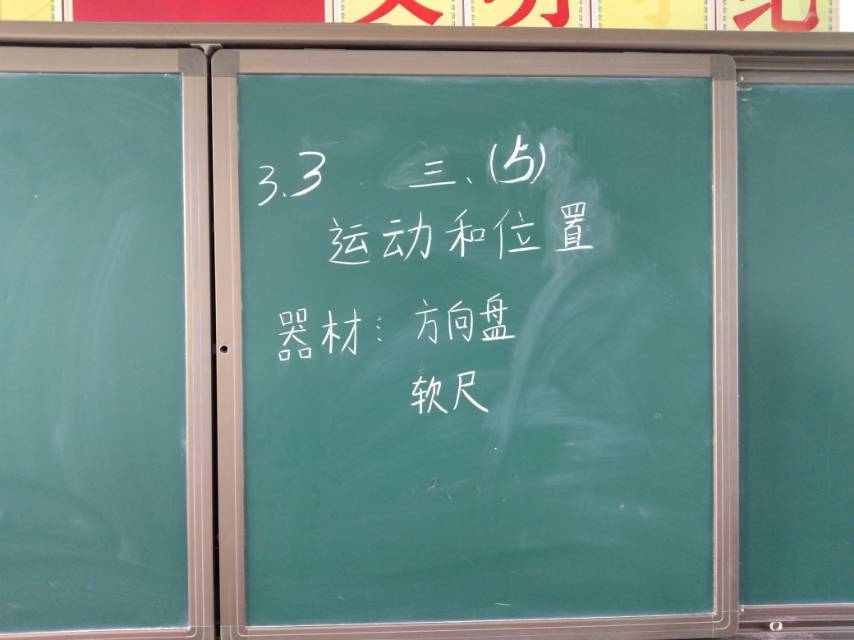 文明
3.3 三、(5)
运动和位置
器材：方向盘
软尺